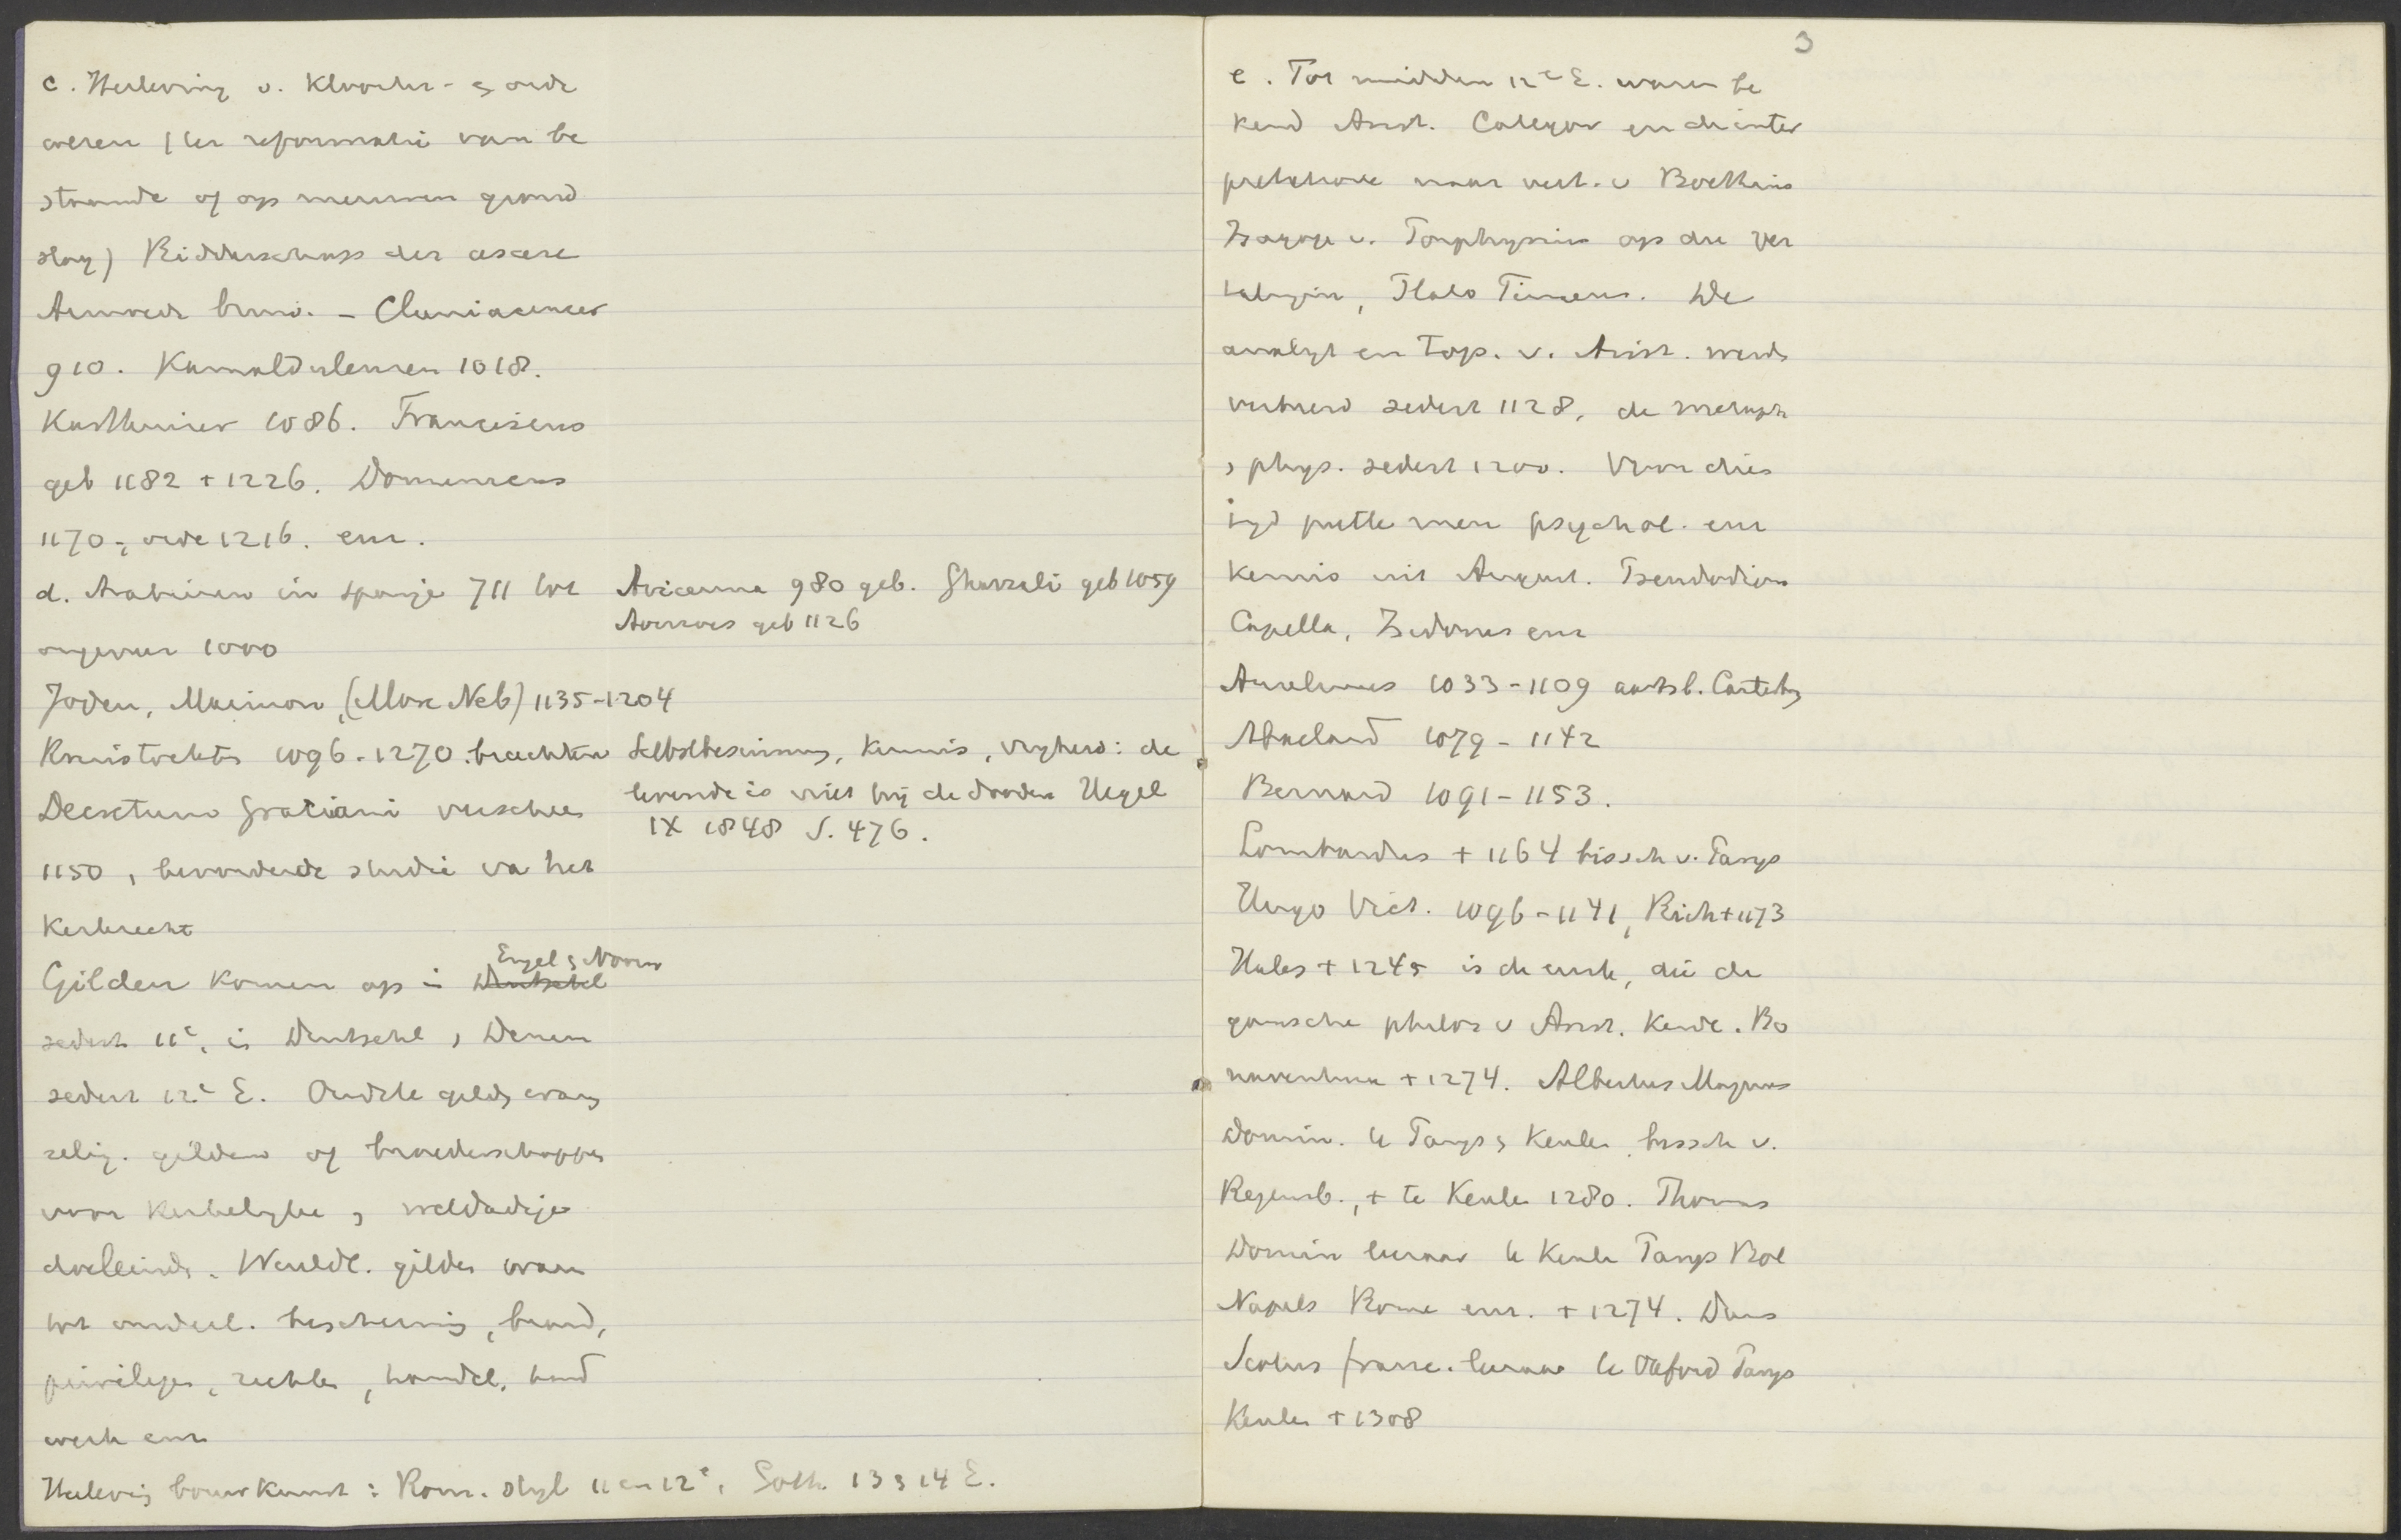 c. Herleving v. Klooster- & orde
wezen (ter reformatie van be
staande of op nieuwen grond
slag) Ridderschap der ascese
Armoede bruid. - Cluniacenser
910. Kamaldulensen 1018.
Karthuiser 1086. Franciscus
geb 1182 + 1226. Dominicus
1170-, orde 1216. enz.
d. Arabieren in Spanje 711 tot
ongeveer 1000
Avicenna 980 geb. Ghazzali geb 1059
Averroes geb 1126
Joden, Maimon, (More Neb) 1135-1204
Kruistochten 1096-1270. brachten Selbstbesinnung, Kennis, vryheid: de
levende is niet bij de dooden Hegel
IX 1848 S. 476.
Decretum Gratiani verscheen
1150, bevorderde studie van het
Kerkrecht
Gilden komen op in Duitschl Engel & Noorw
sedert 11e, in Duitschl, Denem
sedert 12e E. Oudste gilden waren
relig. gilden of broederschappen
voor Kerkelyke & weldadige
doeleinden. Wereldl. gilden waren
tot onderl. bescherming, brand,
privilegen, rechten, handel, hand
werk enz
Herleving bouwkunst: Rom. Styl 11 en 12e, Goth. 13 & 14 E.
3
e. Tot midden 12e E. waren be
kend Arist. Categor en de inter
pretatione naar vert. v Boethius
Isagoge v. Porphyrius op die ver
talingen, Plato Timaeus. De
analyt en Top. v. Arist. werden
verbreid sedert 1128, de metaph
& phys. sedert 1200. Voor dies
tyd putte men psychol. enz
Kennis uit August. Pseudodion
Capella, Isidorus enz
Anselmus 1033-1109 aartsb. Canterby
Abaelard 1079-1142
Bernard 1091-1153.
Lombardus + 1164 bissch v. Parys
Hugo Vict. 1096-1141, Rich + 1173
Hales + 1245 is de eerste, die de
gansche philos v Arist. Kende. Bo
naventura + 1274. Albertus Magnus
Domin. te Parys & Keulen, bissch v.
Regensb., + te Keulen 1280. Thomas
Domin leeraar te Keulen Parys Bol
Napels Rome enz. + 1274. Duns
Scotus franc. leeraar te Oxford Parys
Keulen + 1308